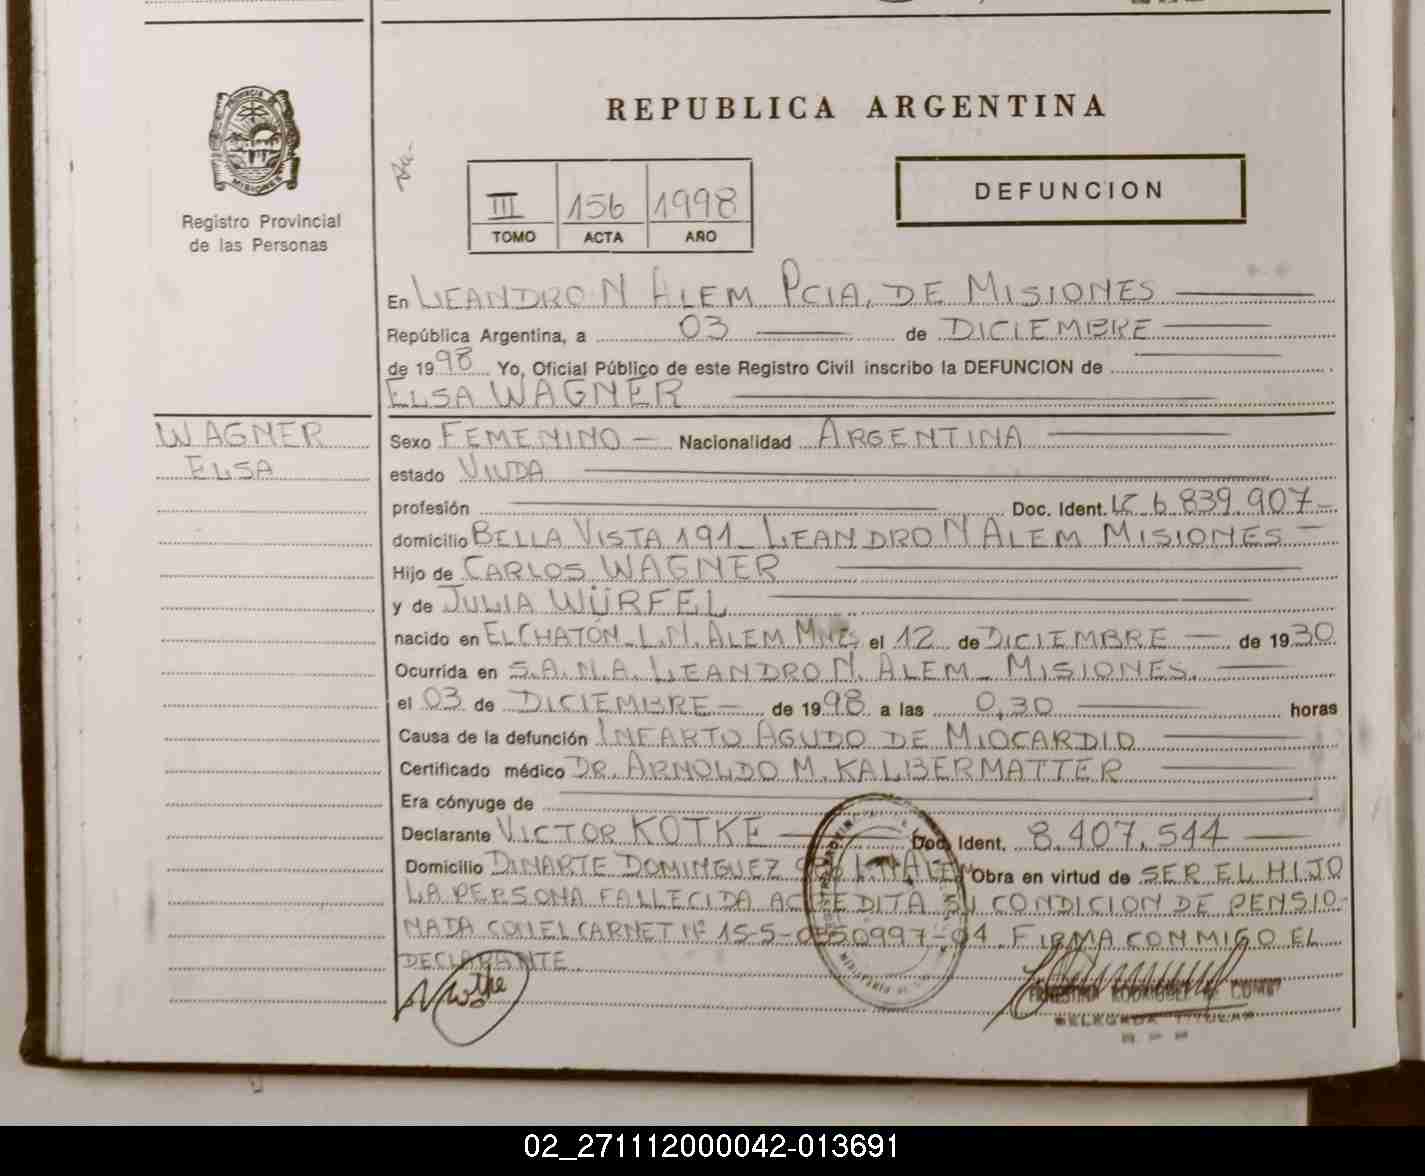 PROVINCIA DE
MISIONES
Registro Provincial
de las Personas
REPUBLICA ARGENTINA
III 156 1998
TOMO ACTA AÑO
DEFUNCION
En LEANDRO N ALEM PCIA. DE MISIONES
República Argentina, a 03 de DICIEMBRE
de 1998 Yo, Oficial Público de este Registro Civil inscribo la DEFUNCION de
ELSA WAGNER
WAGNER
ELSA
Sexo FEMENINO Nacionalidad ARGENTINA
estado VIUDA
profesión Doc. Ident. LC 6.839.907
domicilio BELLA VISTA 191 _ LEANDRO N ALEM MISIONES
Hijo de CARLOS WAGNER
y de JULIA WÜRFEL
nacido en EL CHATÓN _ L.N. ALEM MNES el 12 de DICIEMBRE de 1930
Ocurrida en S.A.N.A. LEANDRO N. ALEM _ MISIONES.
el 03 de DICIEMBRE de 1998 a las 0,30 horas
Causa de la defunción INFARTO AGUDO DE MIOCARDIO
Certificado médico DR. ARNOLDO M. KALBERMATTER
Era cónyuge de
Declarante VICTOR KOTKE Doc. Ident. 8.407.544
Domicilio DINARTE DOMINGUEZ L.N. ALEM Obra en virtud de SER EL HIJO
LA PERSONA FALLECIDA ACREDITA SU CONDICION DE PENSIO-
NADA CON EL CARNET Nº 15-5-0550997-04. FIRMA CONMIGO EL
DECLARANTE
ERNESTINA RODRIGUEZ DE
DELEGADA TITULAR
02_271112000042-013691